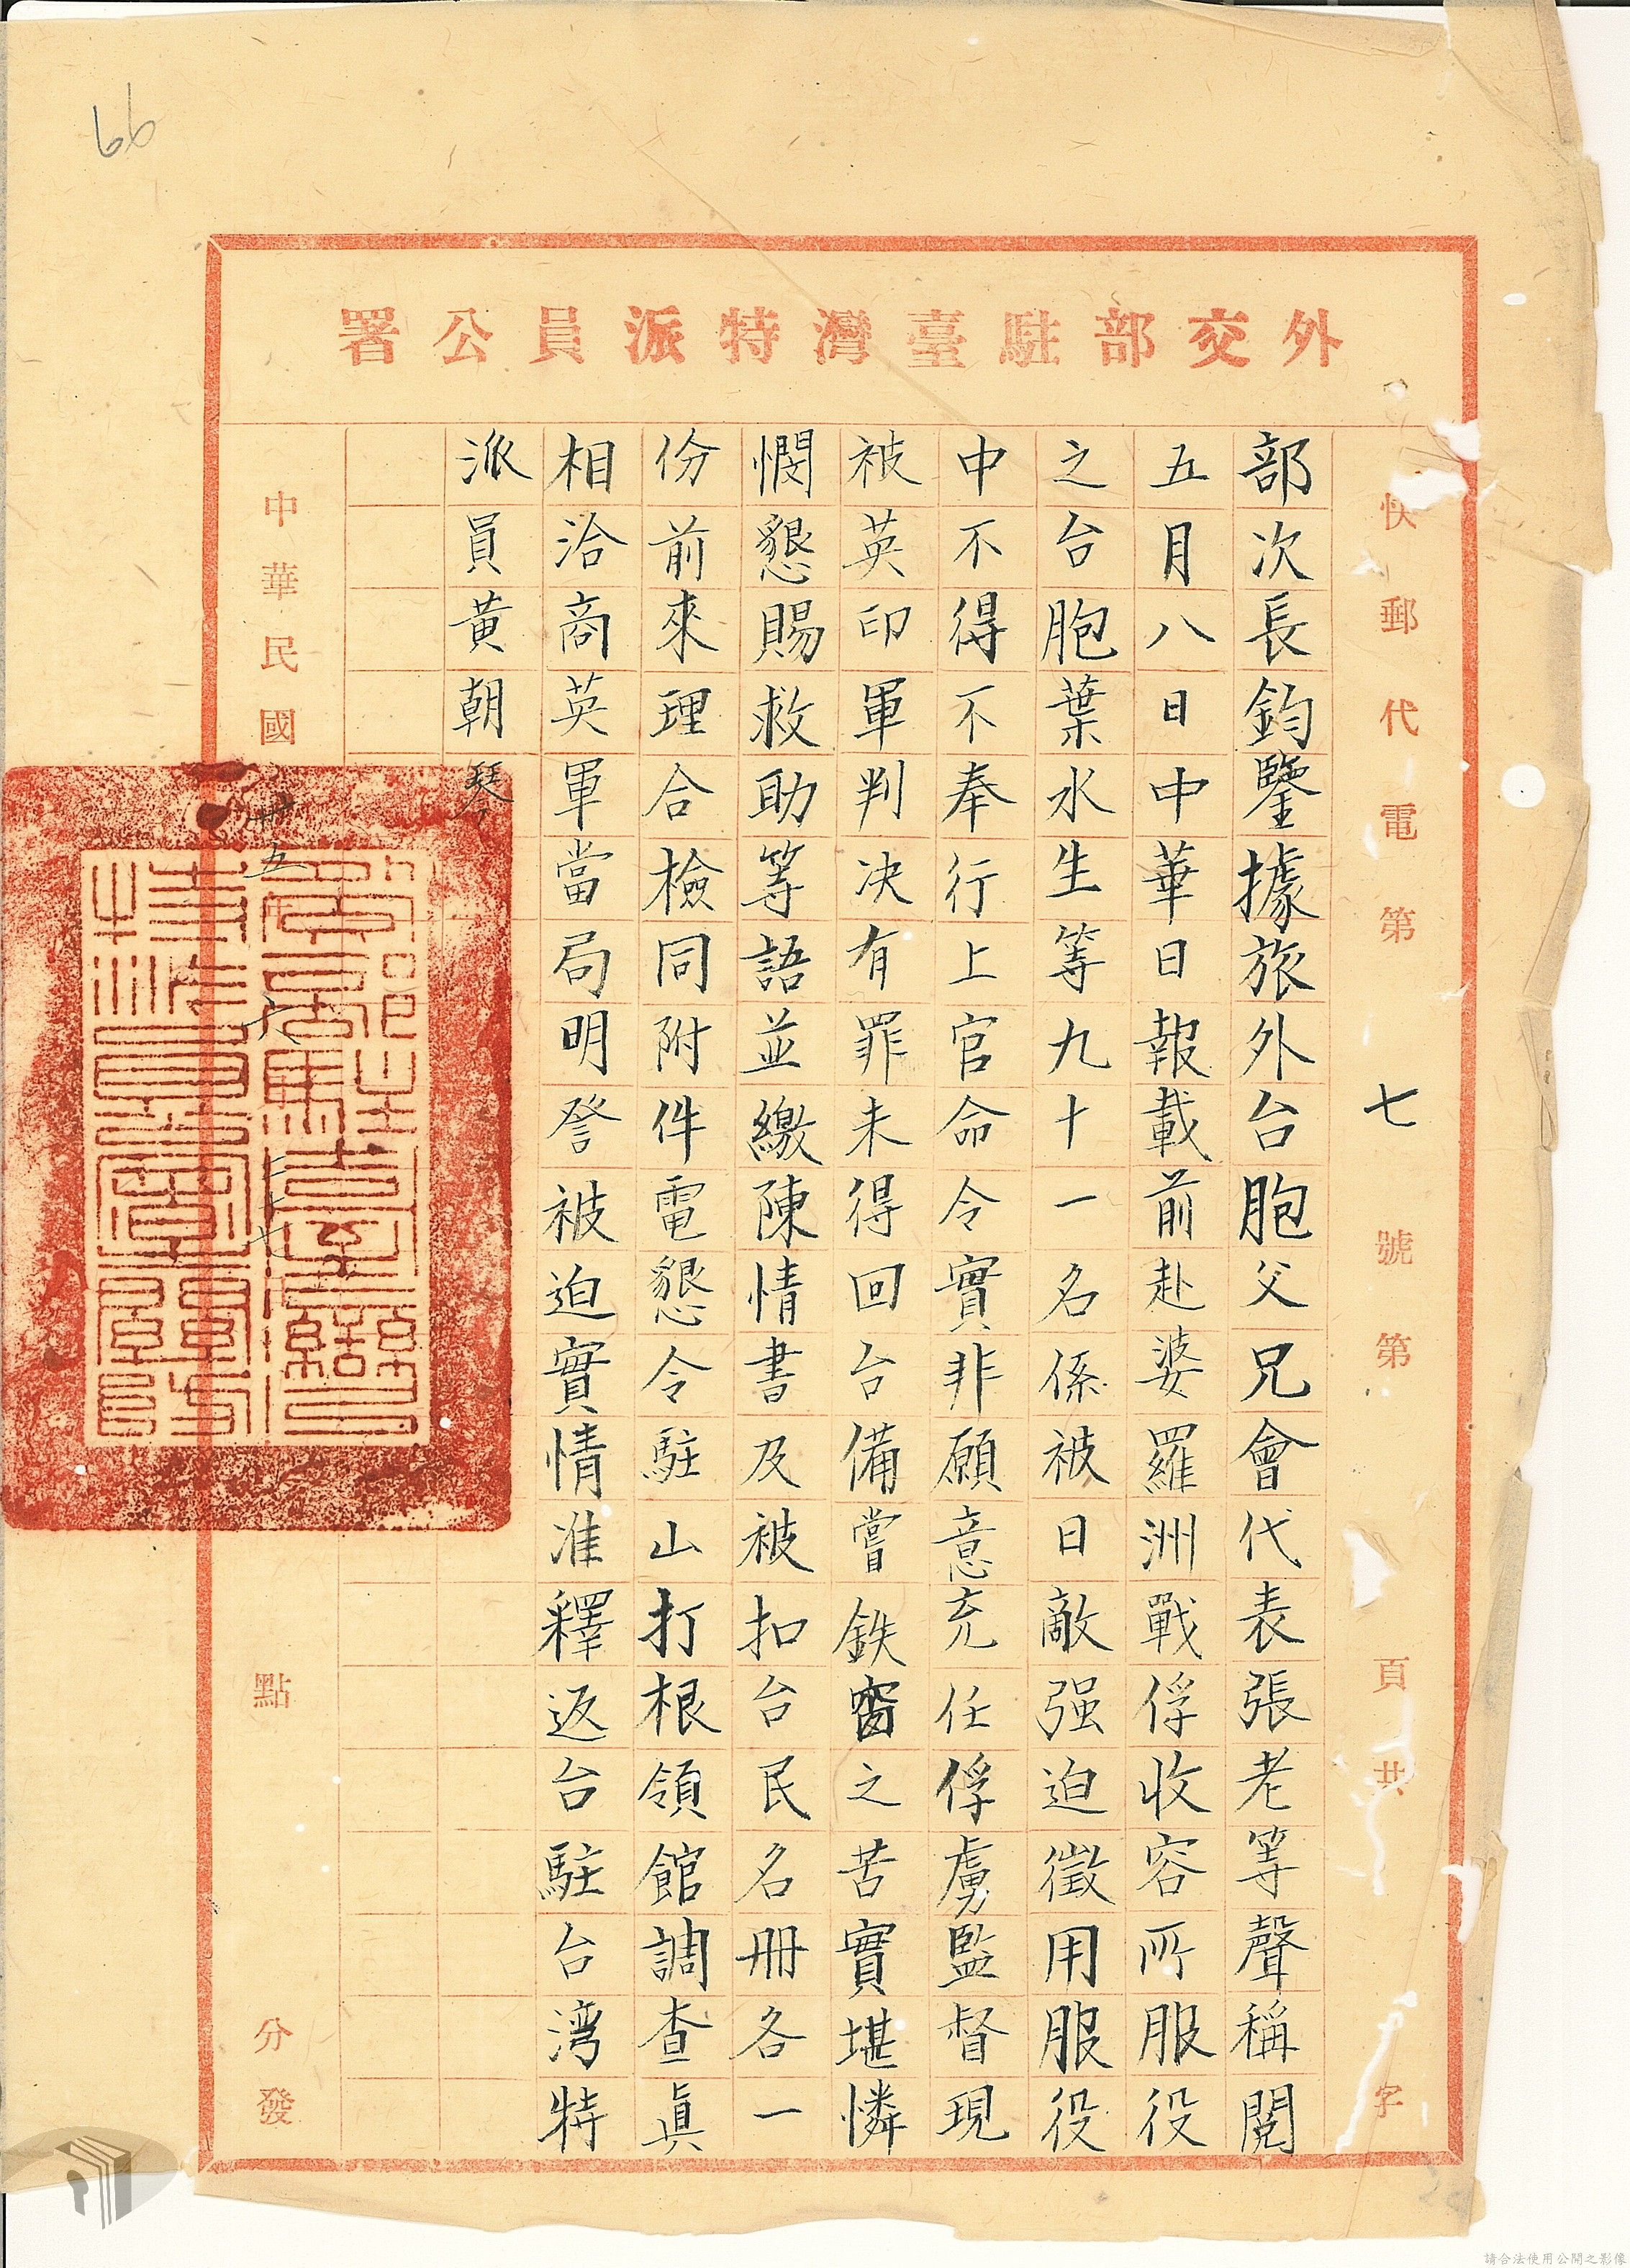 66
外交部駐臺灣特派員公署
快郵代電第七號第頁共字
部次長鈞鑒據旅外台胞父兄會代表張老等聲稱閱
五月八日中華日報載前赴婆羅洲戰俘收容所服役
之台胞葉水生等九十一名係被日敵强迫徵用服役
中不得不奉行上官命令實非願意充任俘虜監督現
被英印軍判决有罪未得回台備嘗鉄窗之苦實堪憐
憫懇賜救助等語並繳陳情書及被扣台民名冊各一
份前來理合檢同附件電懇令駐山打根領館調查眞
相洽商英軍當局明詧被迫實情准釋返台駐台湾特
派員黃朝琴
中華民國卅五年六月二十七日點分發
請合法使用公開之影像